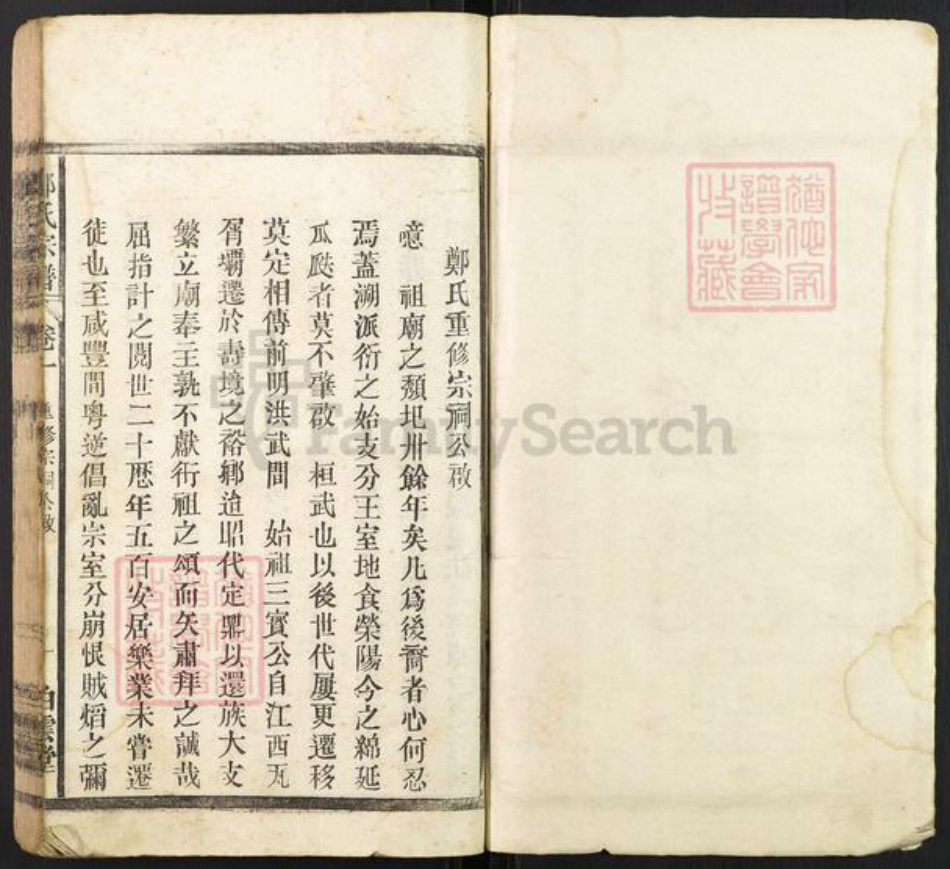 鄭氏重修宗祠公啟
噫 祖廟之頹圯卅餘年矣凡爲後裔者心何忍
焉蓋溯派衍之始支分王室地食榮陽今之綿延
瓜瓞者莫不肇啟 桓武也以後世代屢更遷移
莫定相傳前明洪武間 始祖三寶公自江西瓦
屑壩遷於壽境之裕鄉迨昭代定鼎以還族大支
繁立廟奉主孰不獻衎祖之頌而矢肅拜之誠哉
屈指計之閱世二十歷年五百安居樂業未嘗遷
徒也至咸豐間粵逆倡亂宗室分崩恨賊熖之彌
鄭氏宗譜 卷一 重修宗祠公啟 一 白雲堂
猶他家
譜學會
收藏
FamilySearch